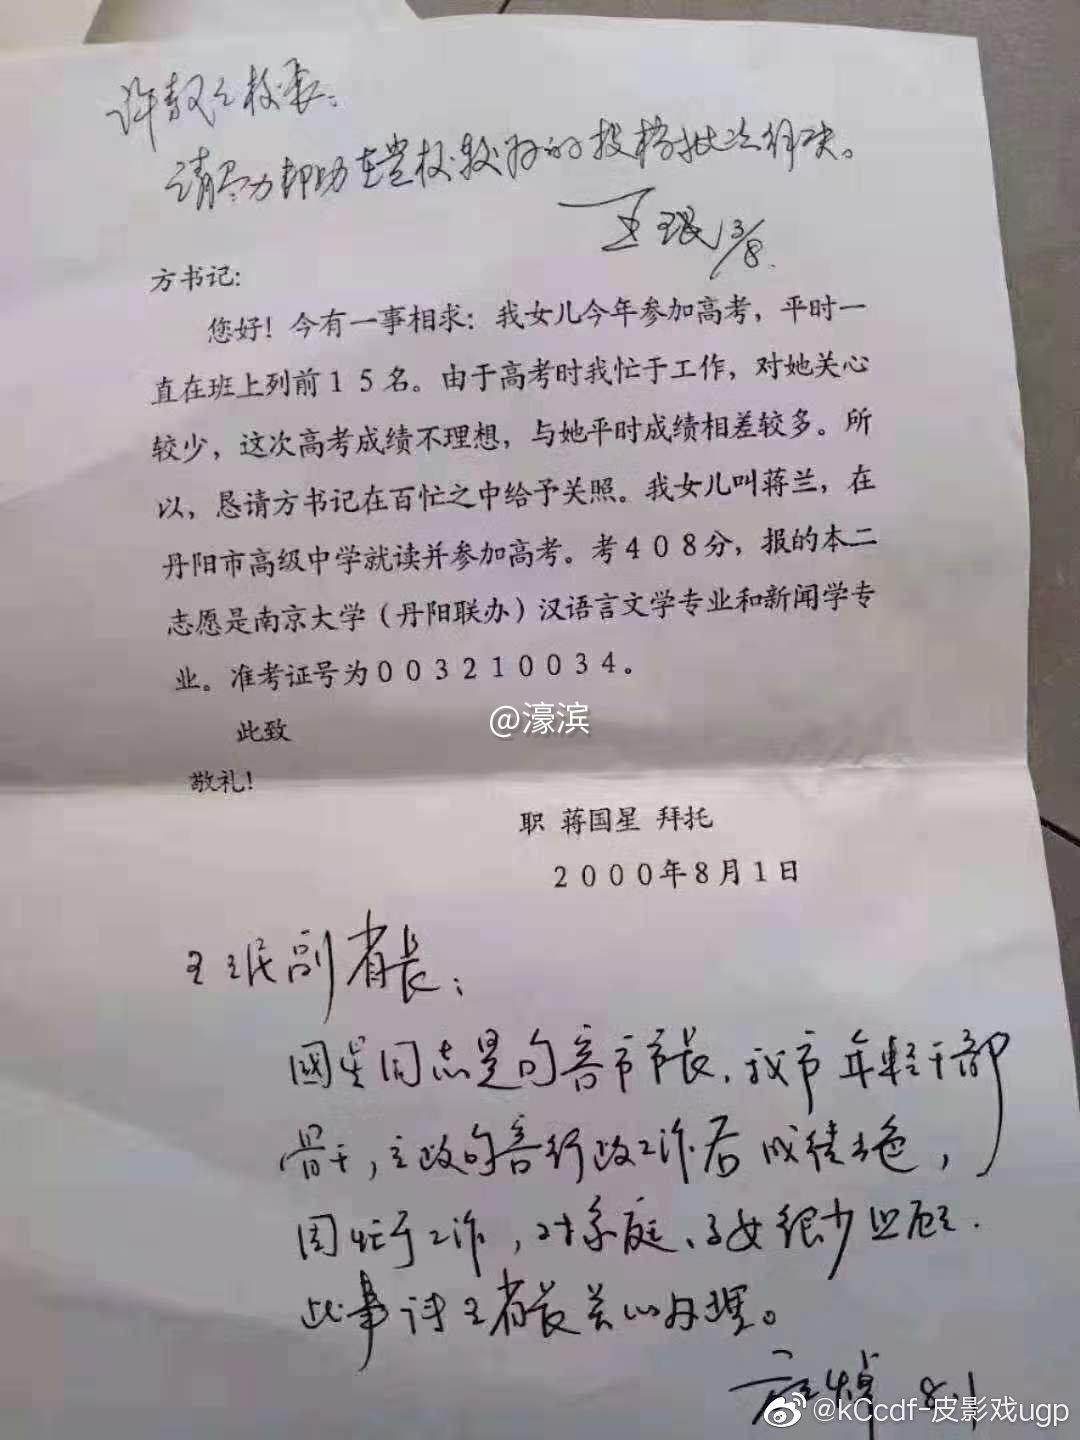 许敖敖校长：
请尽力帮助在贵校较好的投档批次解决。
王珉 3/8.
方书记：
您好！今有一事相求：我女儿今年参加高考，平时一
直在班上列前１５名。由于高考时我忙于工作，对她关心
较少，这次高考成绩不理想，与她平时成绩相差较多。所
以，恳请方书记在百忙之中给予关照。我女儿叫蒋兰，在
丹阳市高级中学就读并参加高考。考４０８分，报的本二
志愿是南京大学（丹阳联办）汉语言文学专业和新闻学专
业。准考证号为００３２１００３４。
@濠滨
此致
敬礼！
职 蒋国星 拜托
２０００年８月１日
王珉副省长：
國星同志是句容市市长，我市年轻干部
骨干，主政句容行政工作后成绩出色，
因忙于工作，对家庭、子女很少照顾.
此事请王省长关心办理。
8.1
@kCcdf-皮影戏ugp